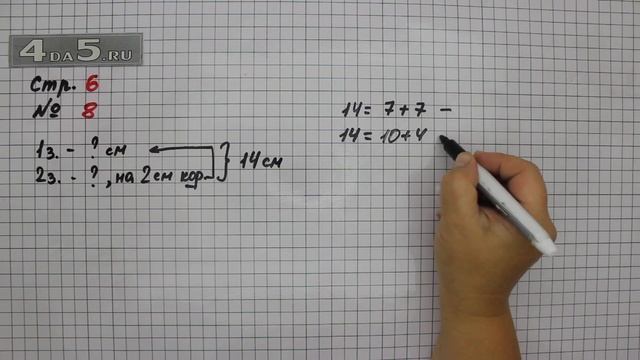 4DA5.RU
Стр. 6
№ 8
1з. - ? см
2з. - ?, на 2см кор.
} 14см
14 = 7 + 7 -
14 = 10 + 4